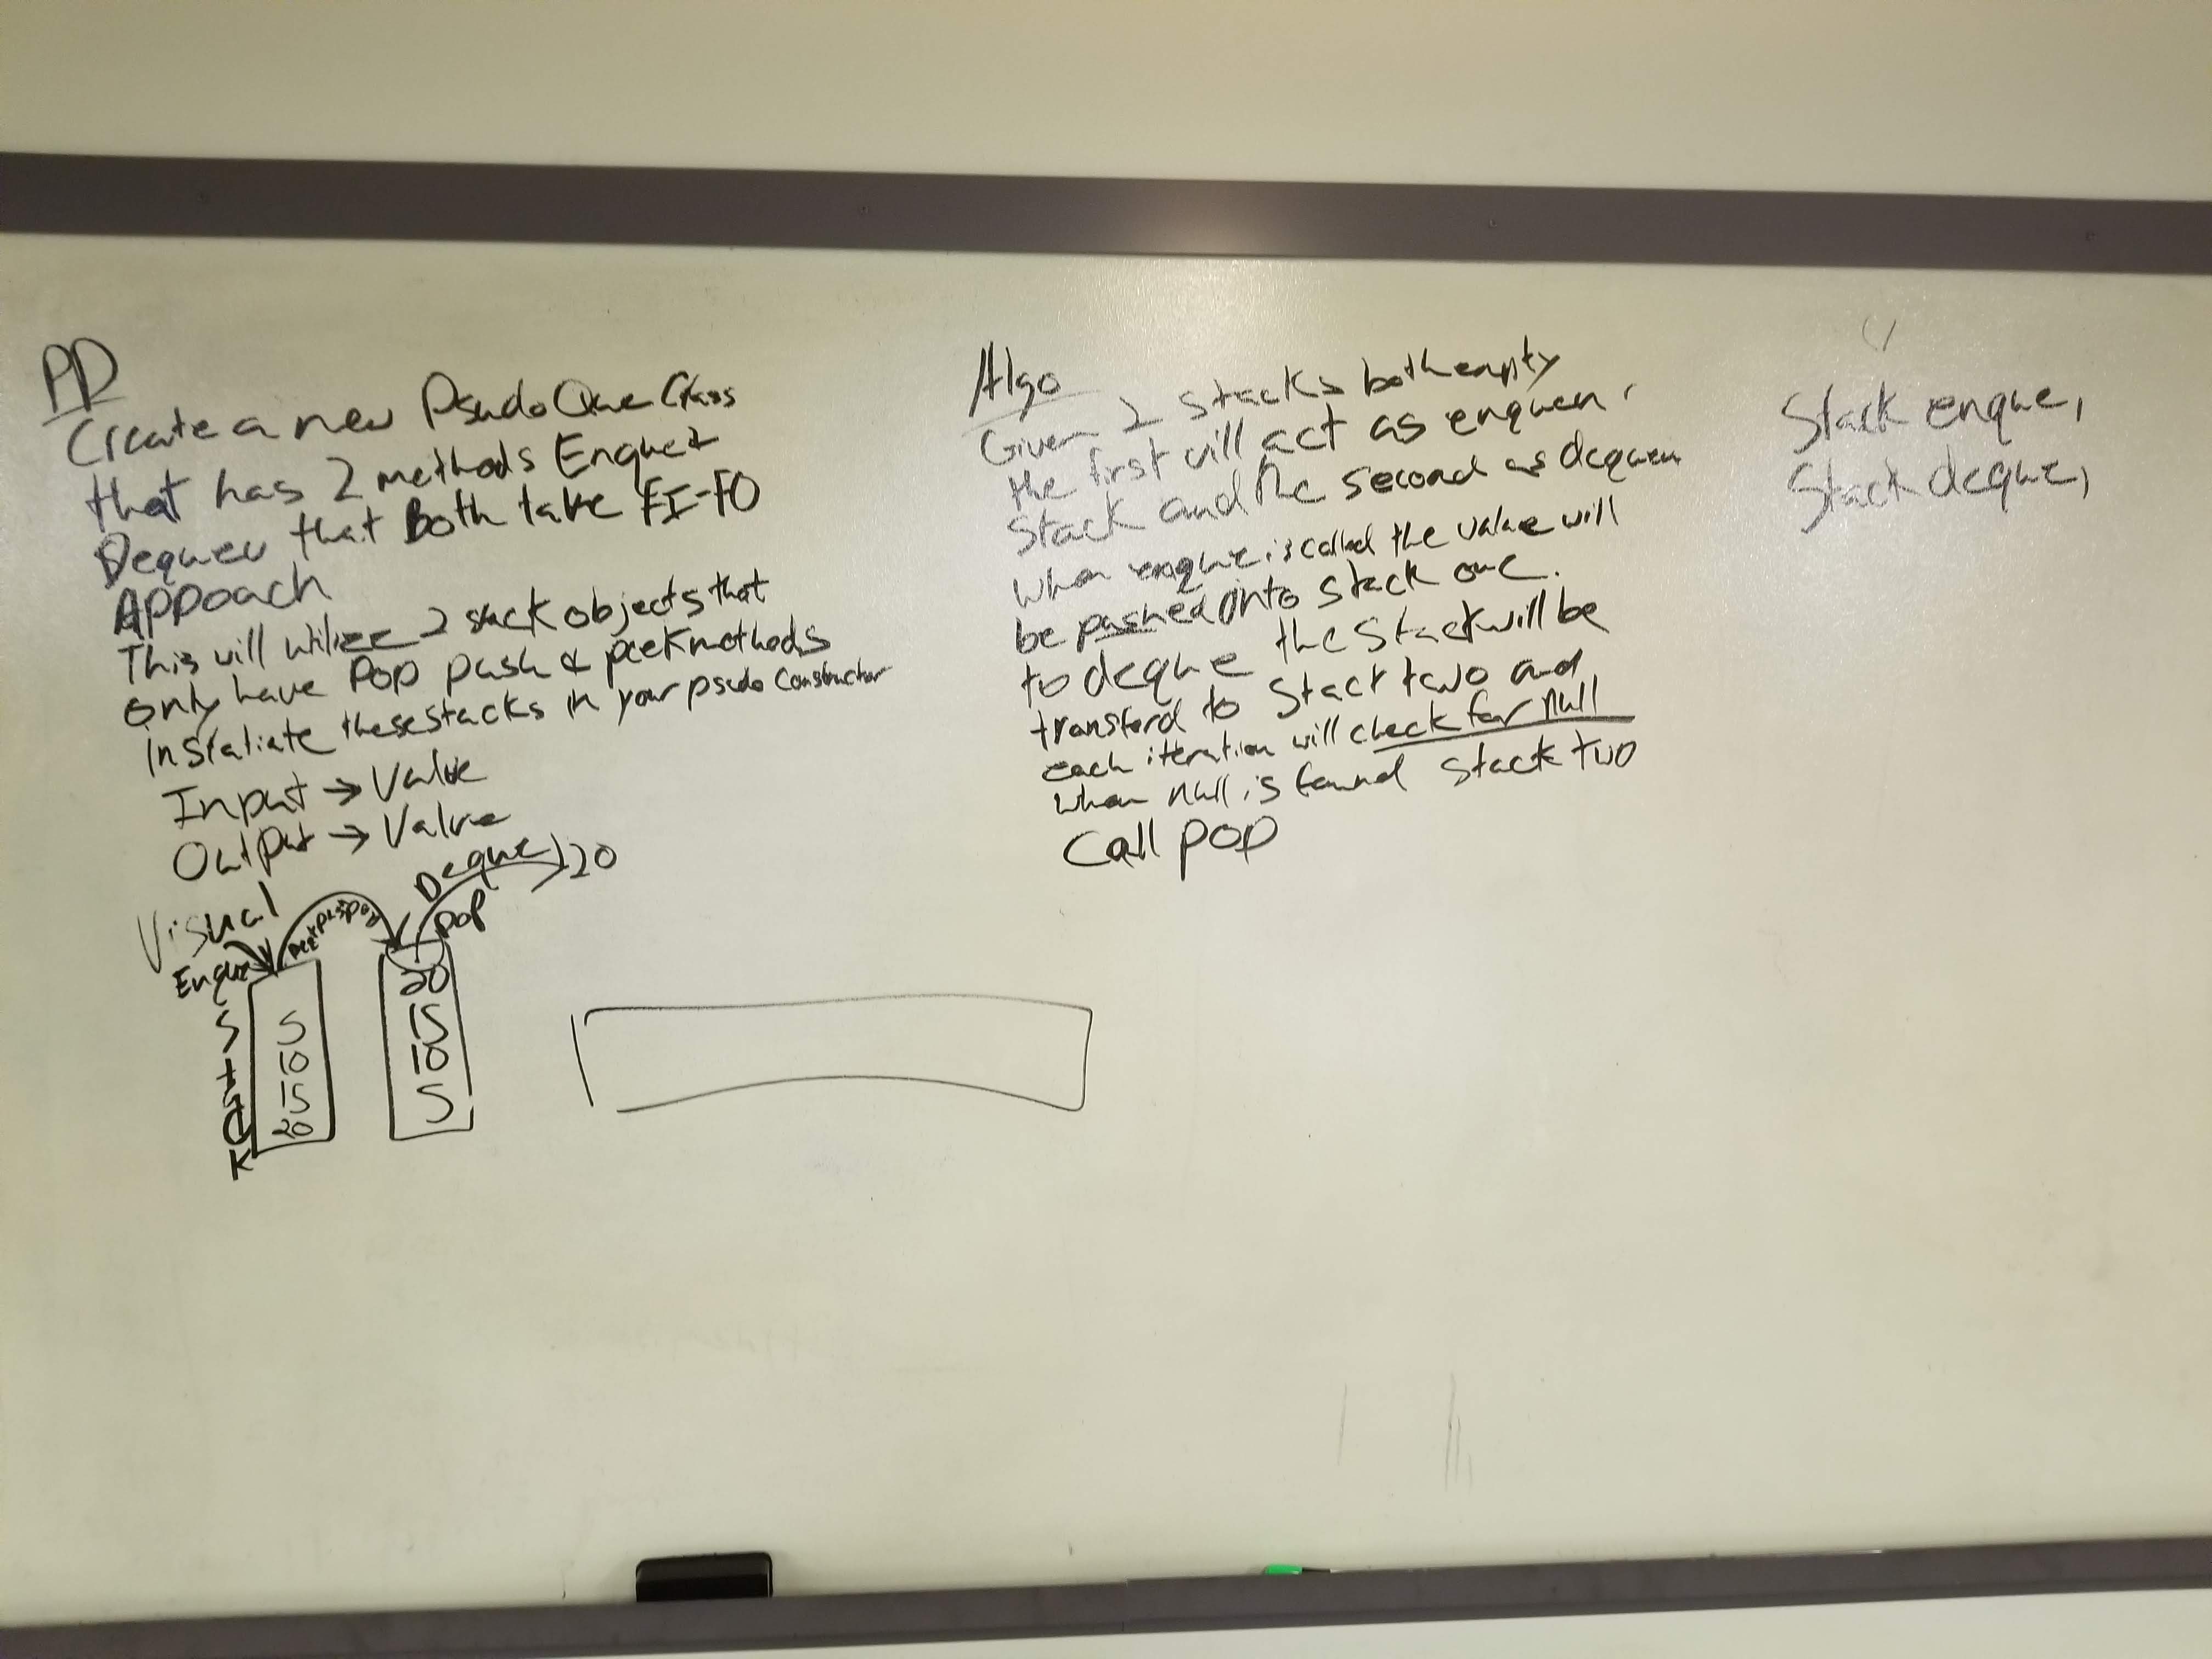 PD
Create a new PsudoQue Class
that has 2 methods Enque &
Dequeu that Both take FI-FO
Appoach
This will utilize 2 stack objects that
only have Pop push & peek methods
instatiate these stacks in your psudo constructor
Input → Value
Output → Value
Visual
Enque
Deque
20
pop
Stack
5
10
15
20
20
15
10
5
Algo
Given 2 stacks both empty
the first will act as enqueu
Stack and the second as dequeu
when enque is called the value will
be pushed into stack one.
to deque the stack will be
transferd to Stact two and
each iteration will check for null
when null is found stack two
Call pop
Stack enque,
Stack deque,